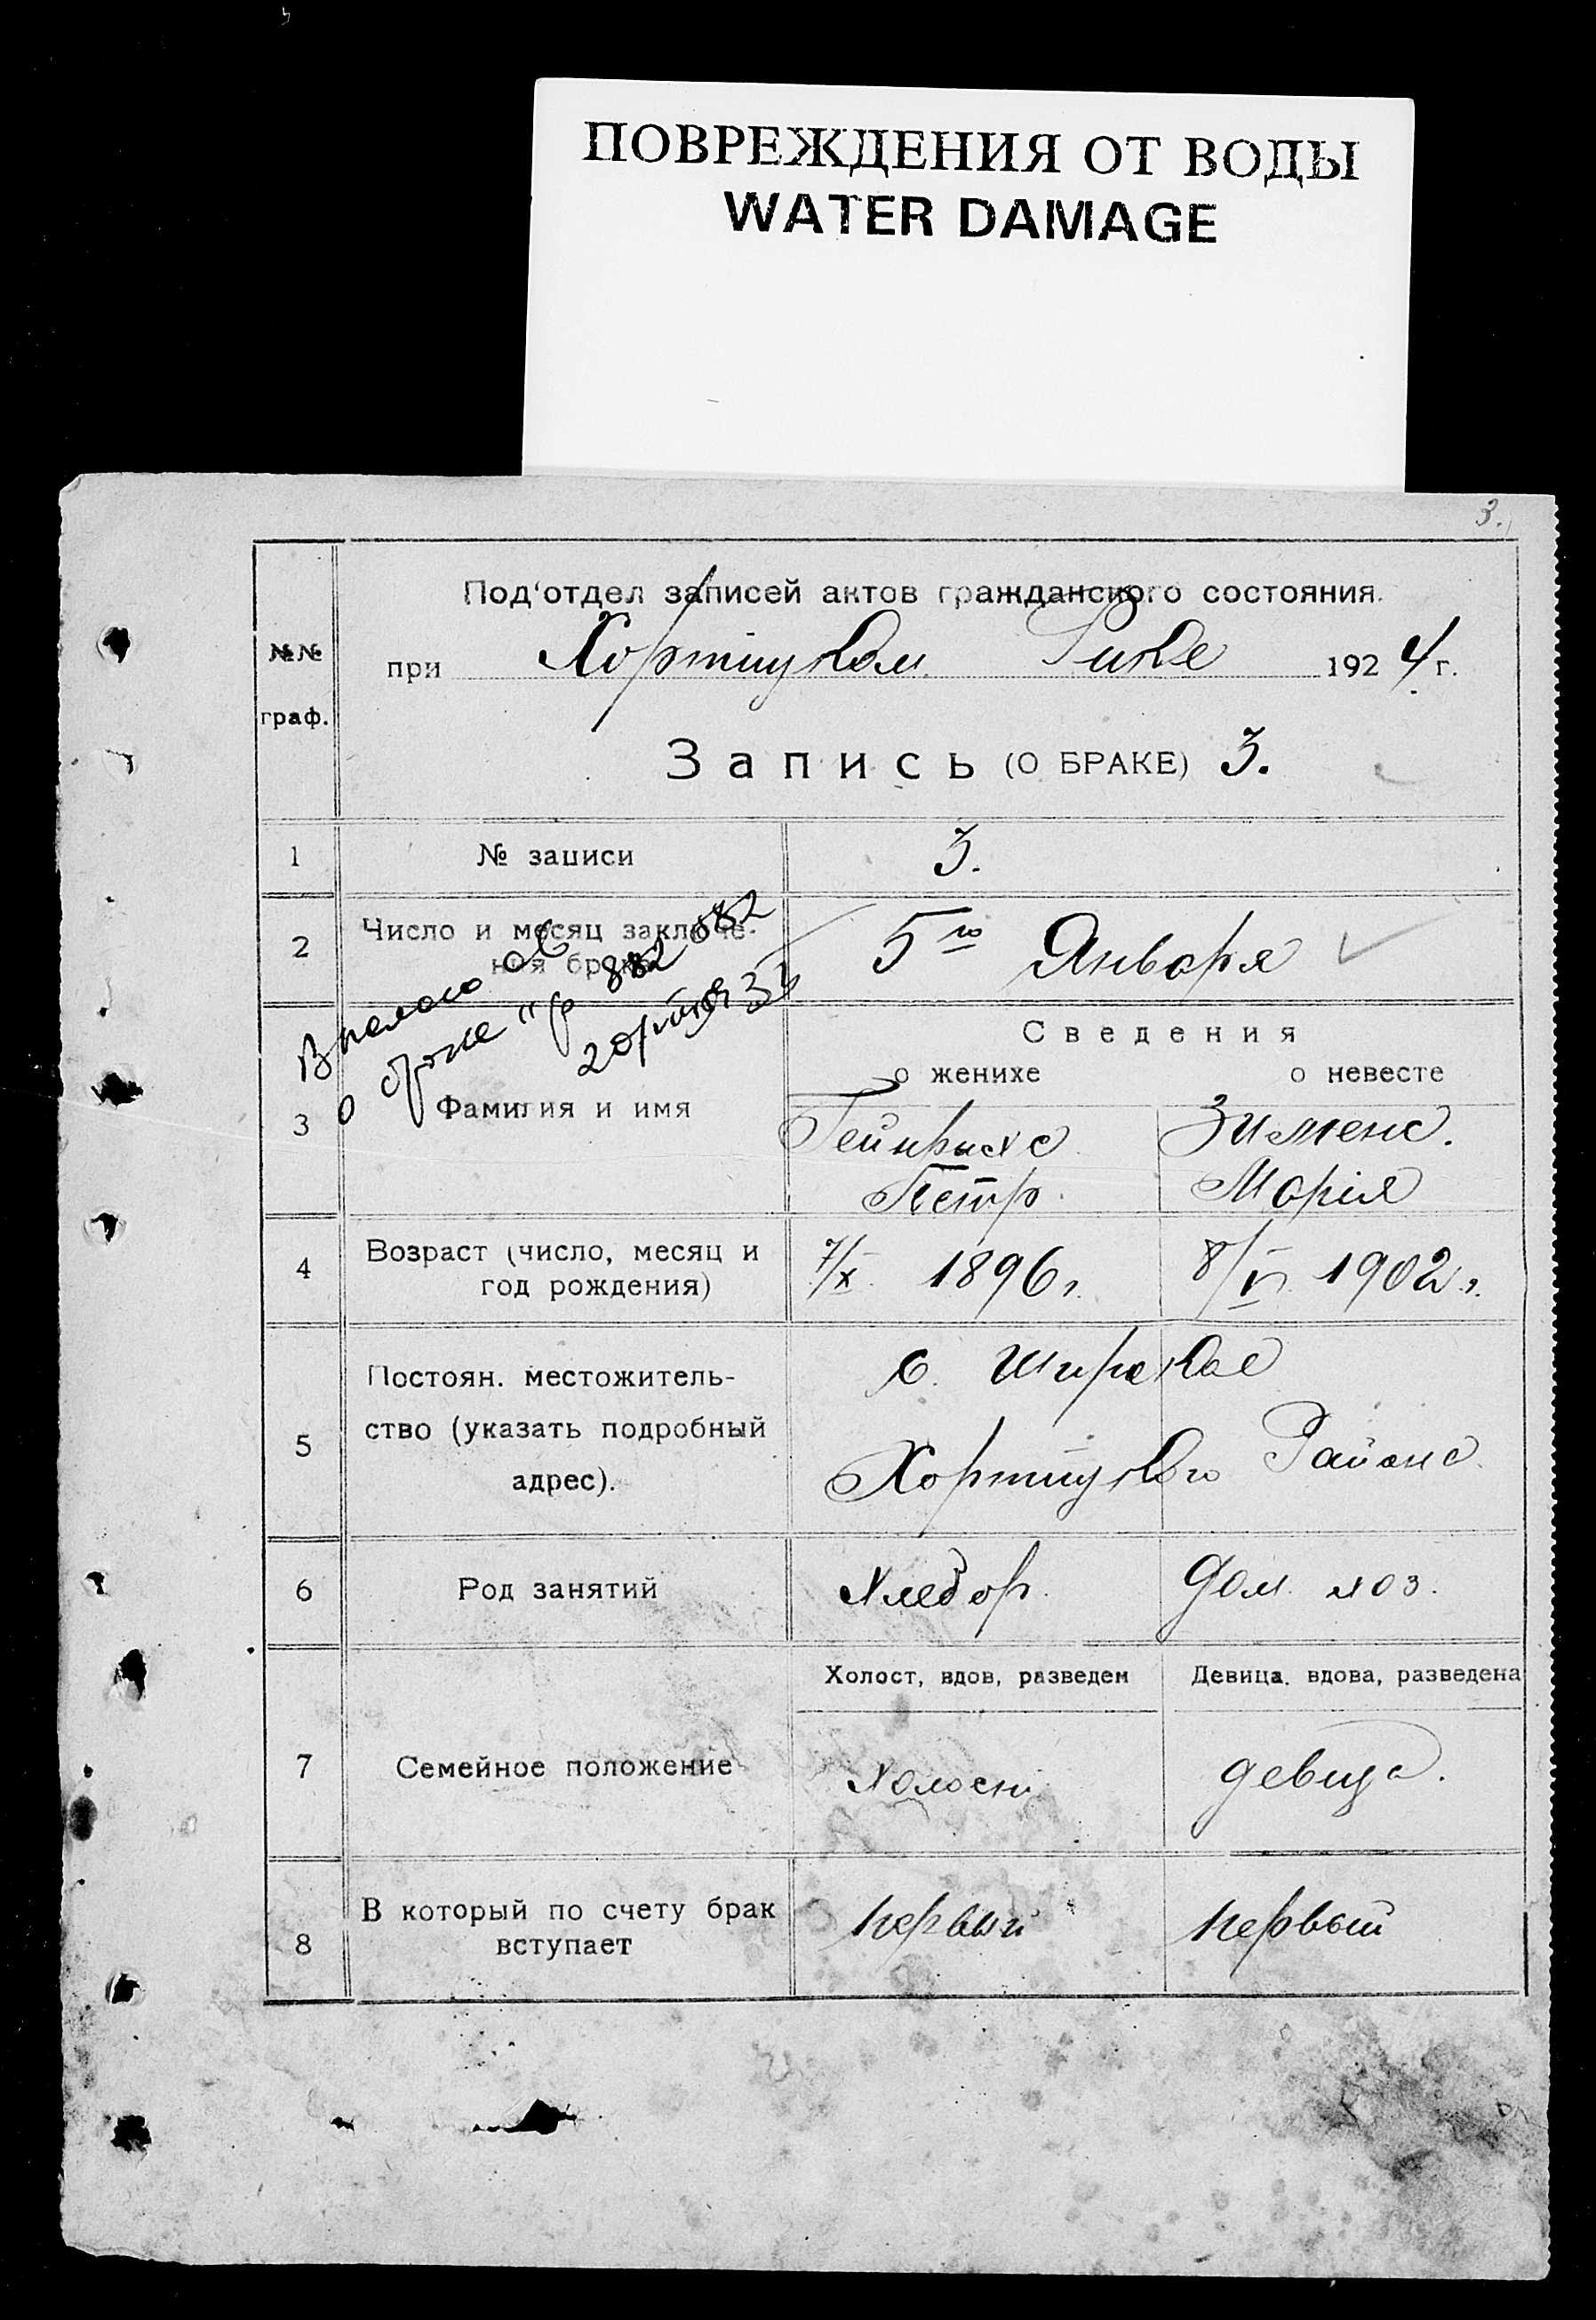 ПОВРЕЖДЕНИЯ ОТ ВОДЫ
WATER DAMAGE
3.
Под'отдел записей актов гражданского состояния.
№№ граф.
при Хортицком Рике 1924 г.
Запись (О БРАКЕ) 3.
1 № записи 3.
2 Число и месяц заключения брака 5го Января
Сведения
о женихе о невесте
3 Фамилия и имя
Гейнрихс Зименс.
Петр. Марія
4 Возраст (число, месяц и
год рождения) 7/X 1896 г. 8/V 1902 г.
5 Постоян. местожитель-
ство (указать подробный
адрес).
с. Широкое
Хортицкого Района
6 Род занятий Хлебор. Дом. хоз.
Холост, вдов, разведен Девица, вдова, разведена
7 Семейное положение Холост девица.
8 В который по счету брак
вступает первый первый